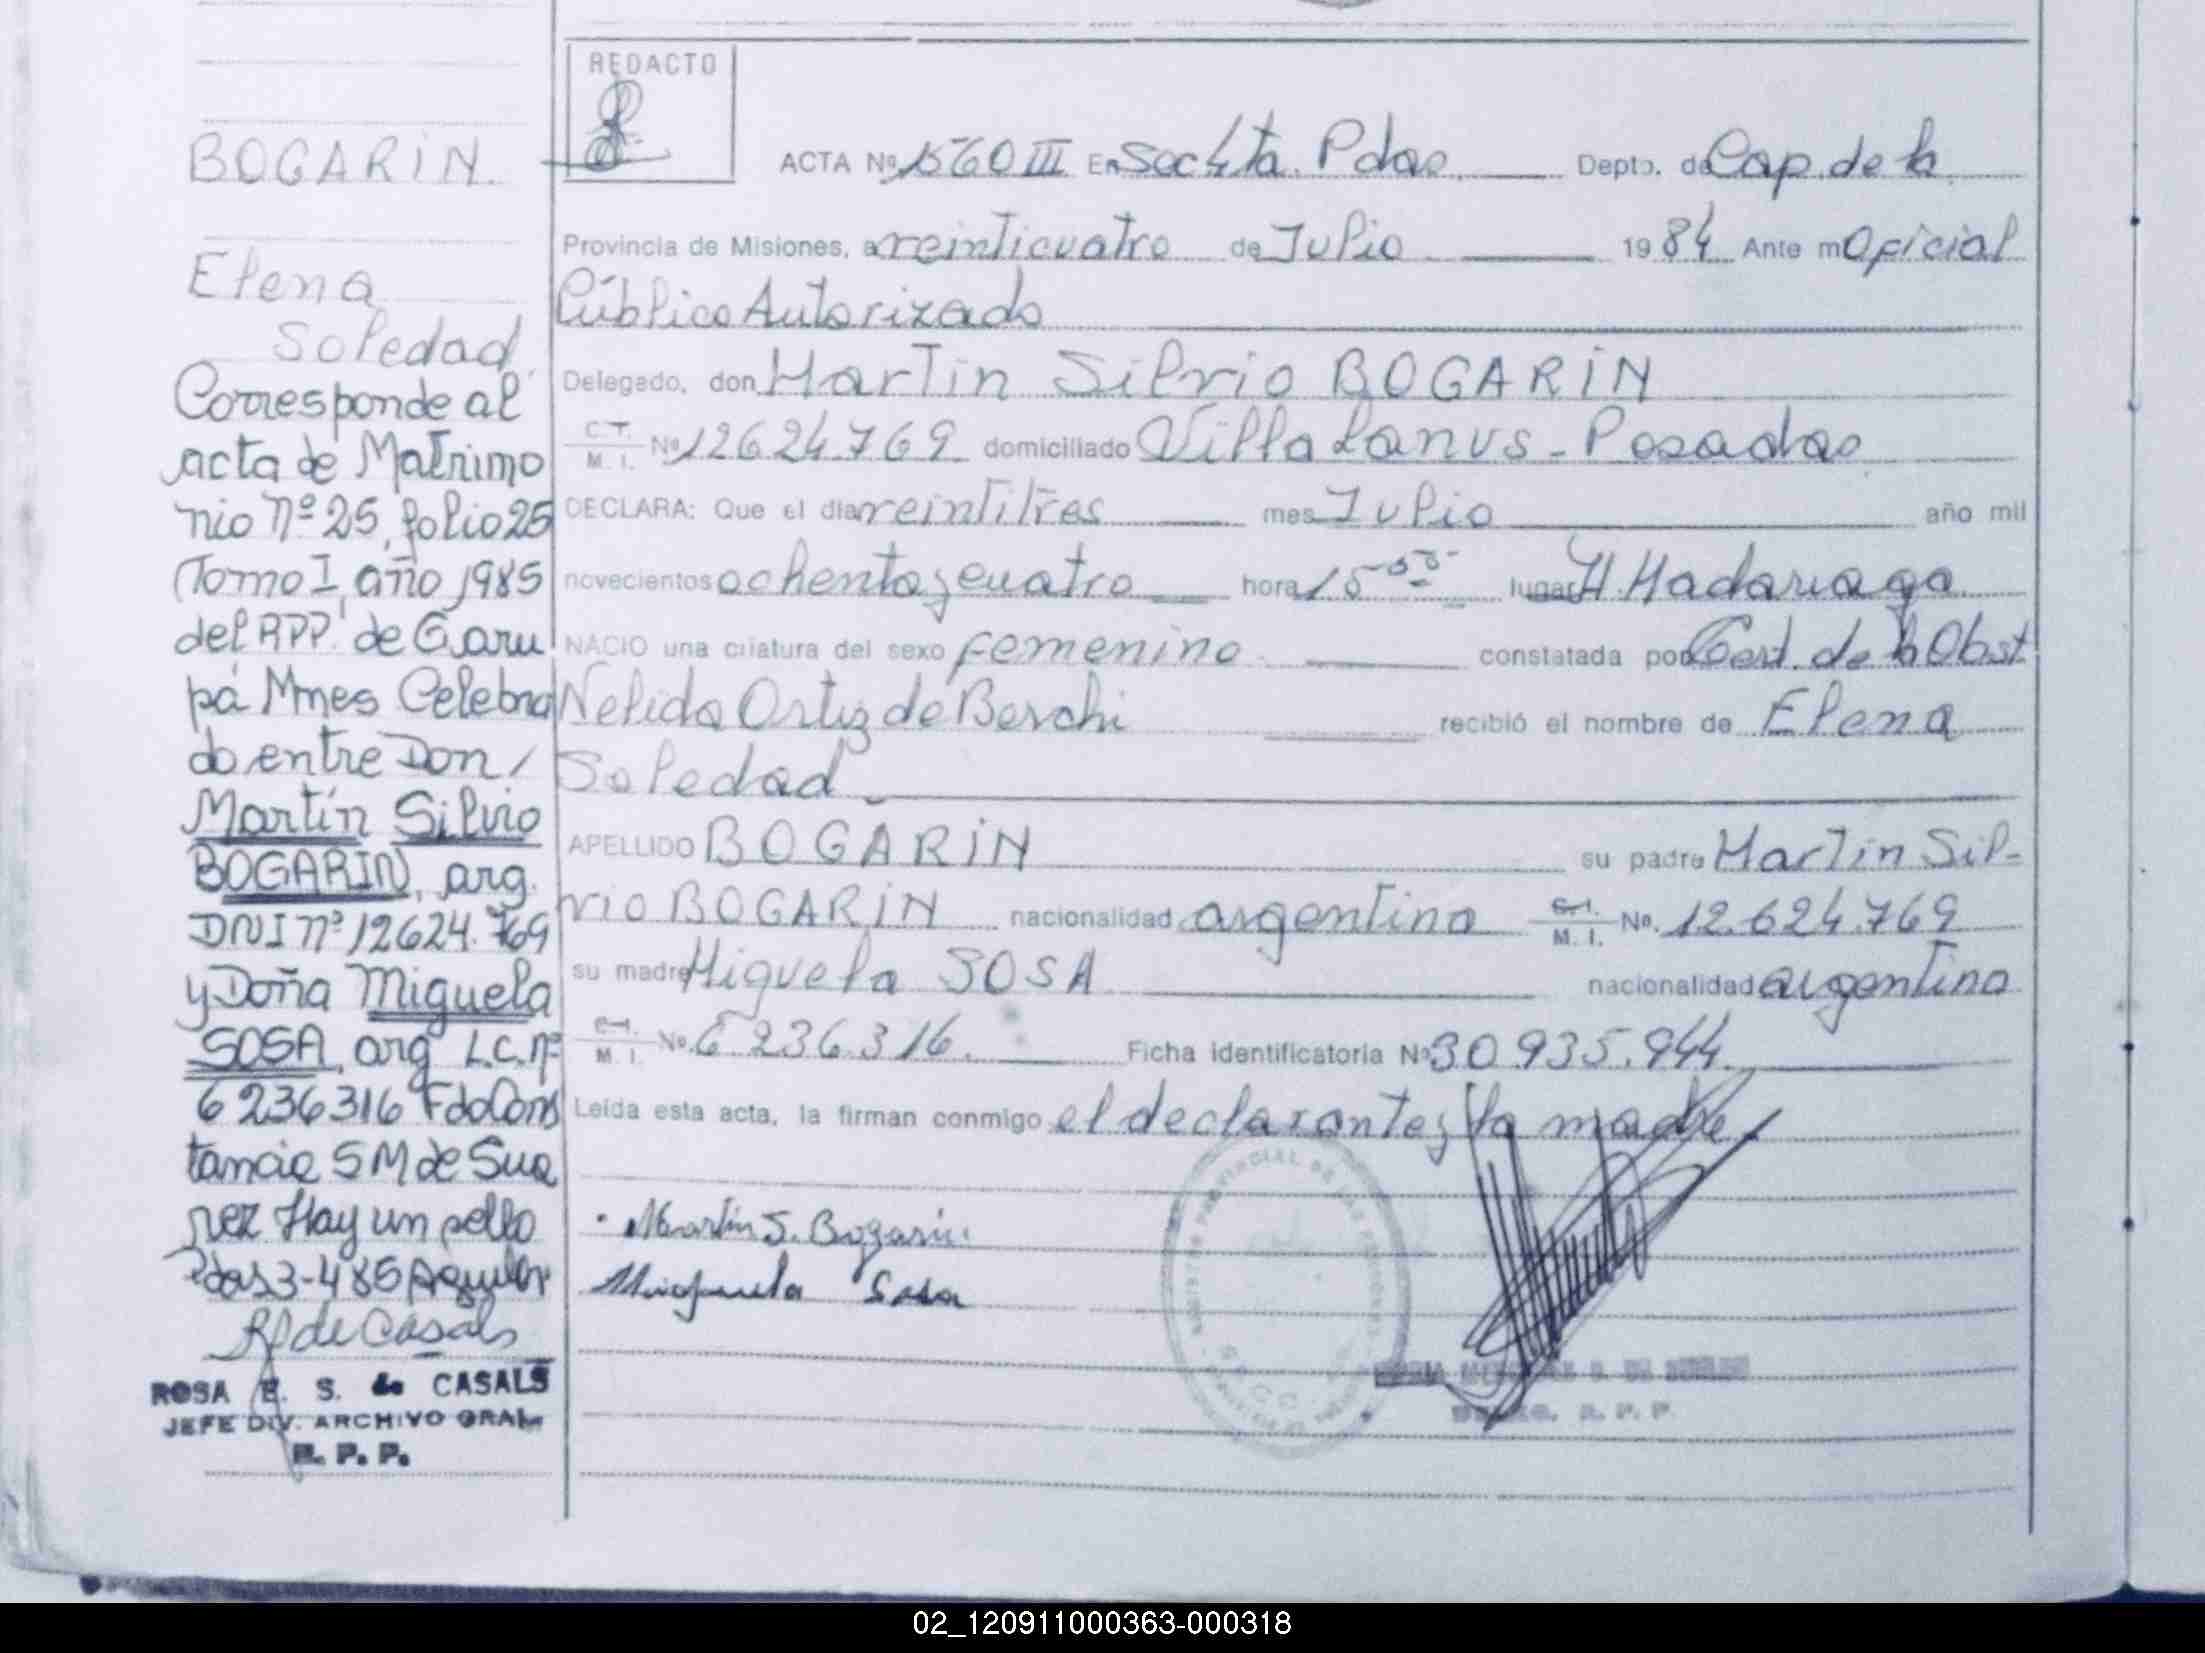 BOGARIN.
Elena
Soledad
Corresponde al
acta de Matrimo
nio nº 25, folio 25
Tomo I año 1985
del RPP. de Garu
pá Mnes Celebra
do entre Don /
Martín Silvio
BOGARIN, arg.
DNI nº 12624.769
y Doña Miguela
SOSA, arg L.C. nº
6 236316 Fdo Cons
tancia S M de Sua
rez Hay un sello
Pdas 3-4 85 Aguilar
R de Casals
ROSA E. S. de CASALS
JEFE DIV. ARCHIVO GRAL.
R. P. P.
REDACTO
ACTA Nº 1560 III En Sec 4ta. Pdas. Depto. de Cap. de la
Provincia de Misiones, a veinticuatro de Julio 1984 Ante mí Oficial
Público Autorizado
Delegado, don Martin Silvio BOGARIN
C. T. M. I. Nº 12624.769 domiciliado Villa Lanus - Posadas
DECLARA: Que el día veintitres mes Julio año mil
novecientos ochenta y cuatro hora 15 lugar H. Madariaga
NACIO una criatura del sexo femenino constatada por Cert. de la Obst
Nelida Ortiz de Berchi recibió el nombre de Elena
Soledad
APELLIDO BOGARIN su padre Martin Sil-
vio BOGARIN nacionalidad argentina C. I. M. I. No. 12.624.769
su madre Miguela SOSA nacionalidad argentina
C. I. M. I. Nº 6 236.316. Ficha identificatoria Nº 30.935.944
Leída esta acta, la firman conmigo el declarante y la madre
Martín S. Bogarin
Miguela Sosa
02_120911000363-000318